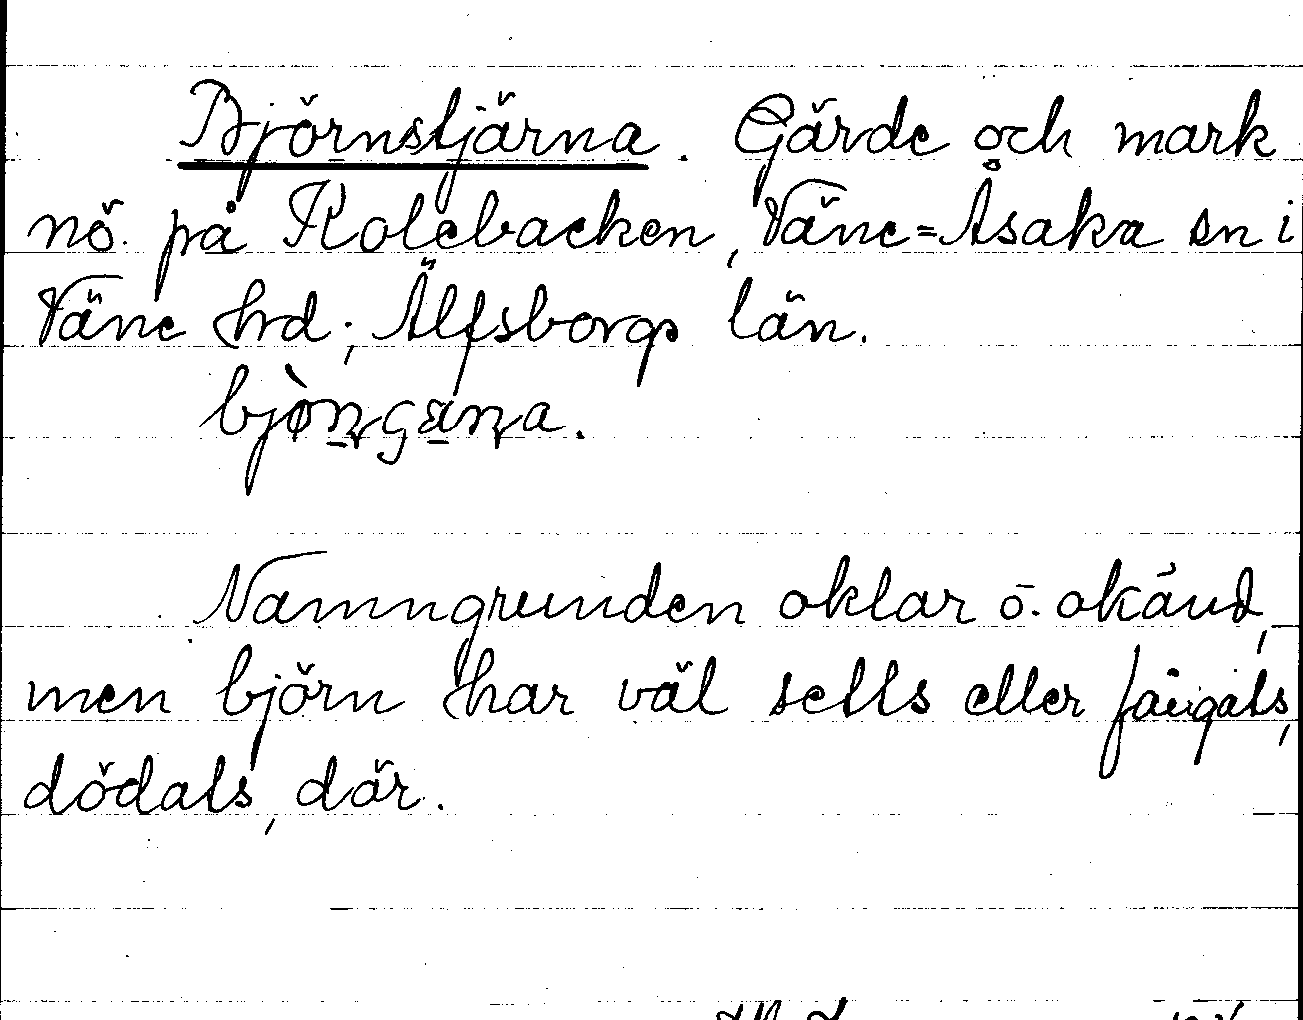 Björnstjärna. Gärde och mark
nö. på Kolebacken, Väne=Åsaka sn i
Väne hrd; Älfsborgs län.
bjòn̠gäna.
Namngrunden oklar o. okänd,
men björn har väl setts eller fångats,
dödats, där.